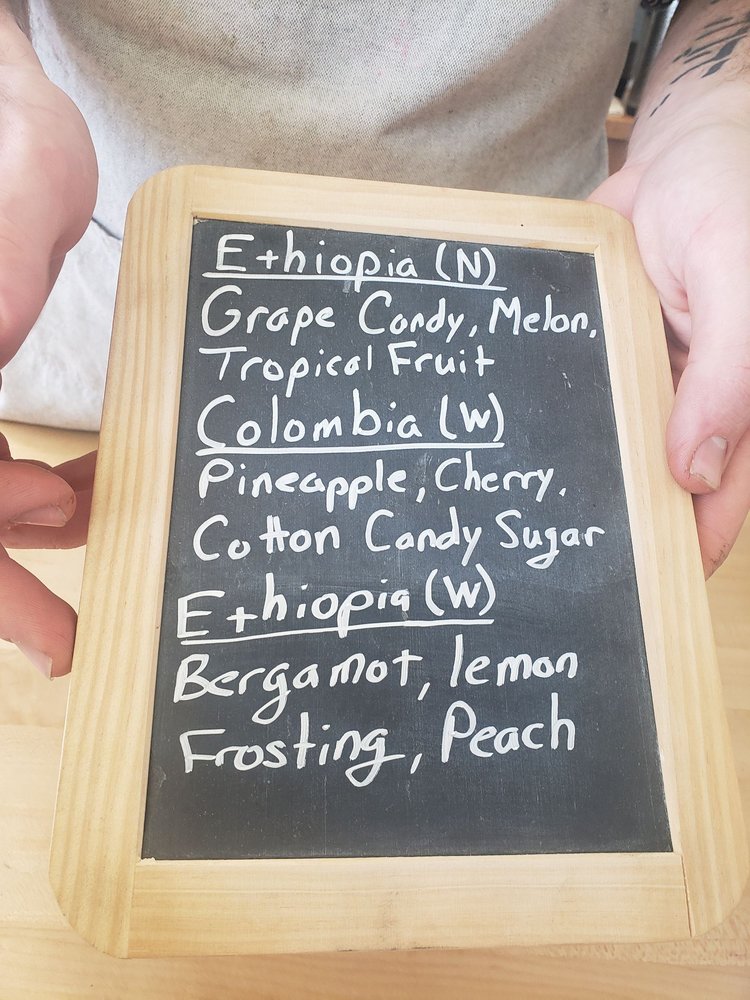 Ethiopia (N)
Grape Candy, Melon,
Tropical Fruit
Colombia (W)
Pineapple, Cherry,
Cotton Candy Sugar
Ethiopia (W)
Bergamot, lemon
Frosting, Peach